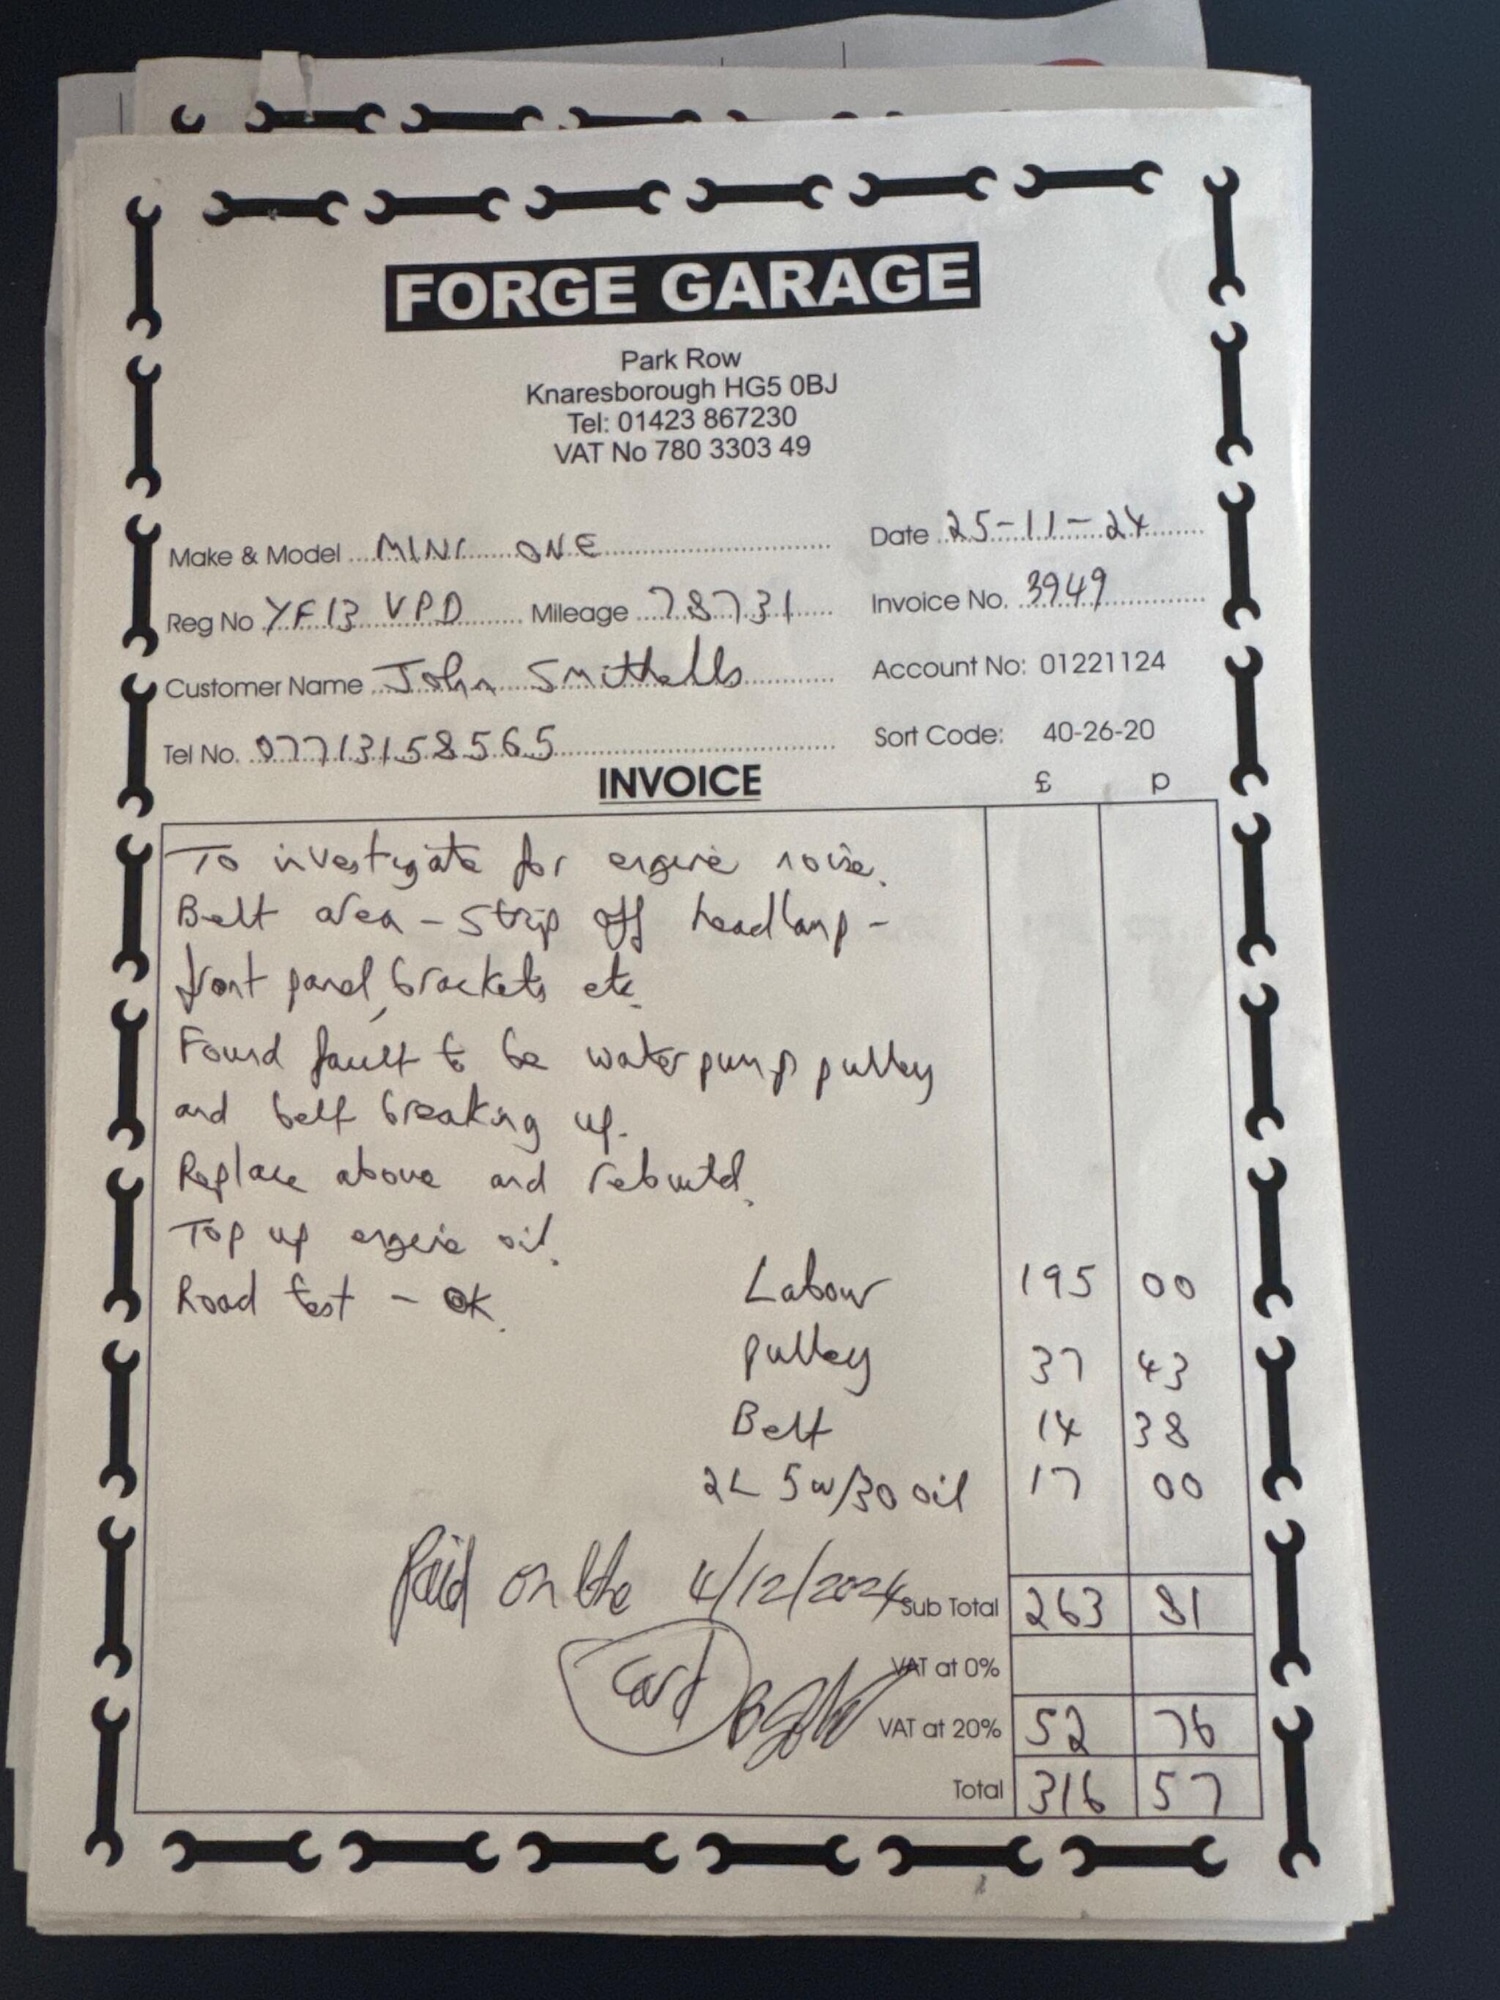 FORGE GARAGE
Park Row
Knaresborough HG5 0BJ
Tel: 01423 867230
VAT No 780 3303 49
Make & Model MINI ONE Date 25-11-24
Reg No YF13 VPD Mileage 78731 Invoice No. 3949
Customer Name John Smithells Account No: 01221124
Tel No. 07713158565 Sort Code: 40-26-20
INVOICE £ p
To investigate for engine noise.
Belt area - strip off headlamp -
front panel, brackets etc.
Found fault to be water pump pulley
and belt breaking up.
Replace above and rebuild.
Top up engine oil.
Road test - OK.
Labour 195 00
pulley 37 43
Belt 14 38
2L 5w/30 oil 17 00
Paid on the 4/12/2024
Sub Total 263 81
Card
VAT at 0%
VAT at 20% 52 76
Total 316 57